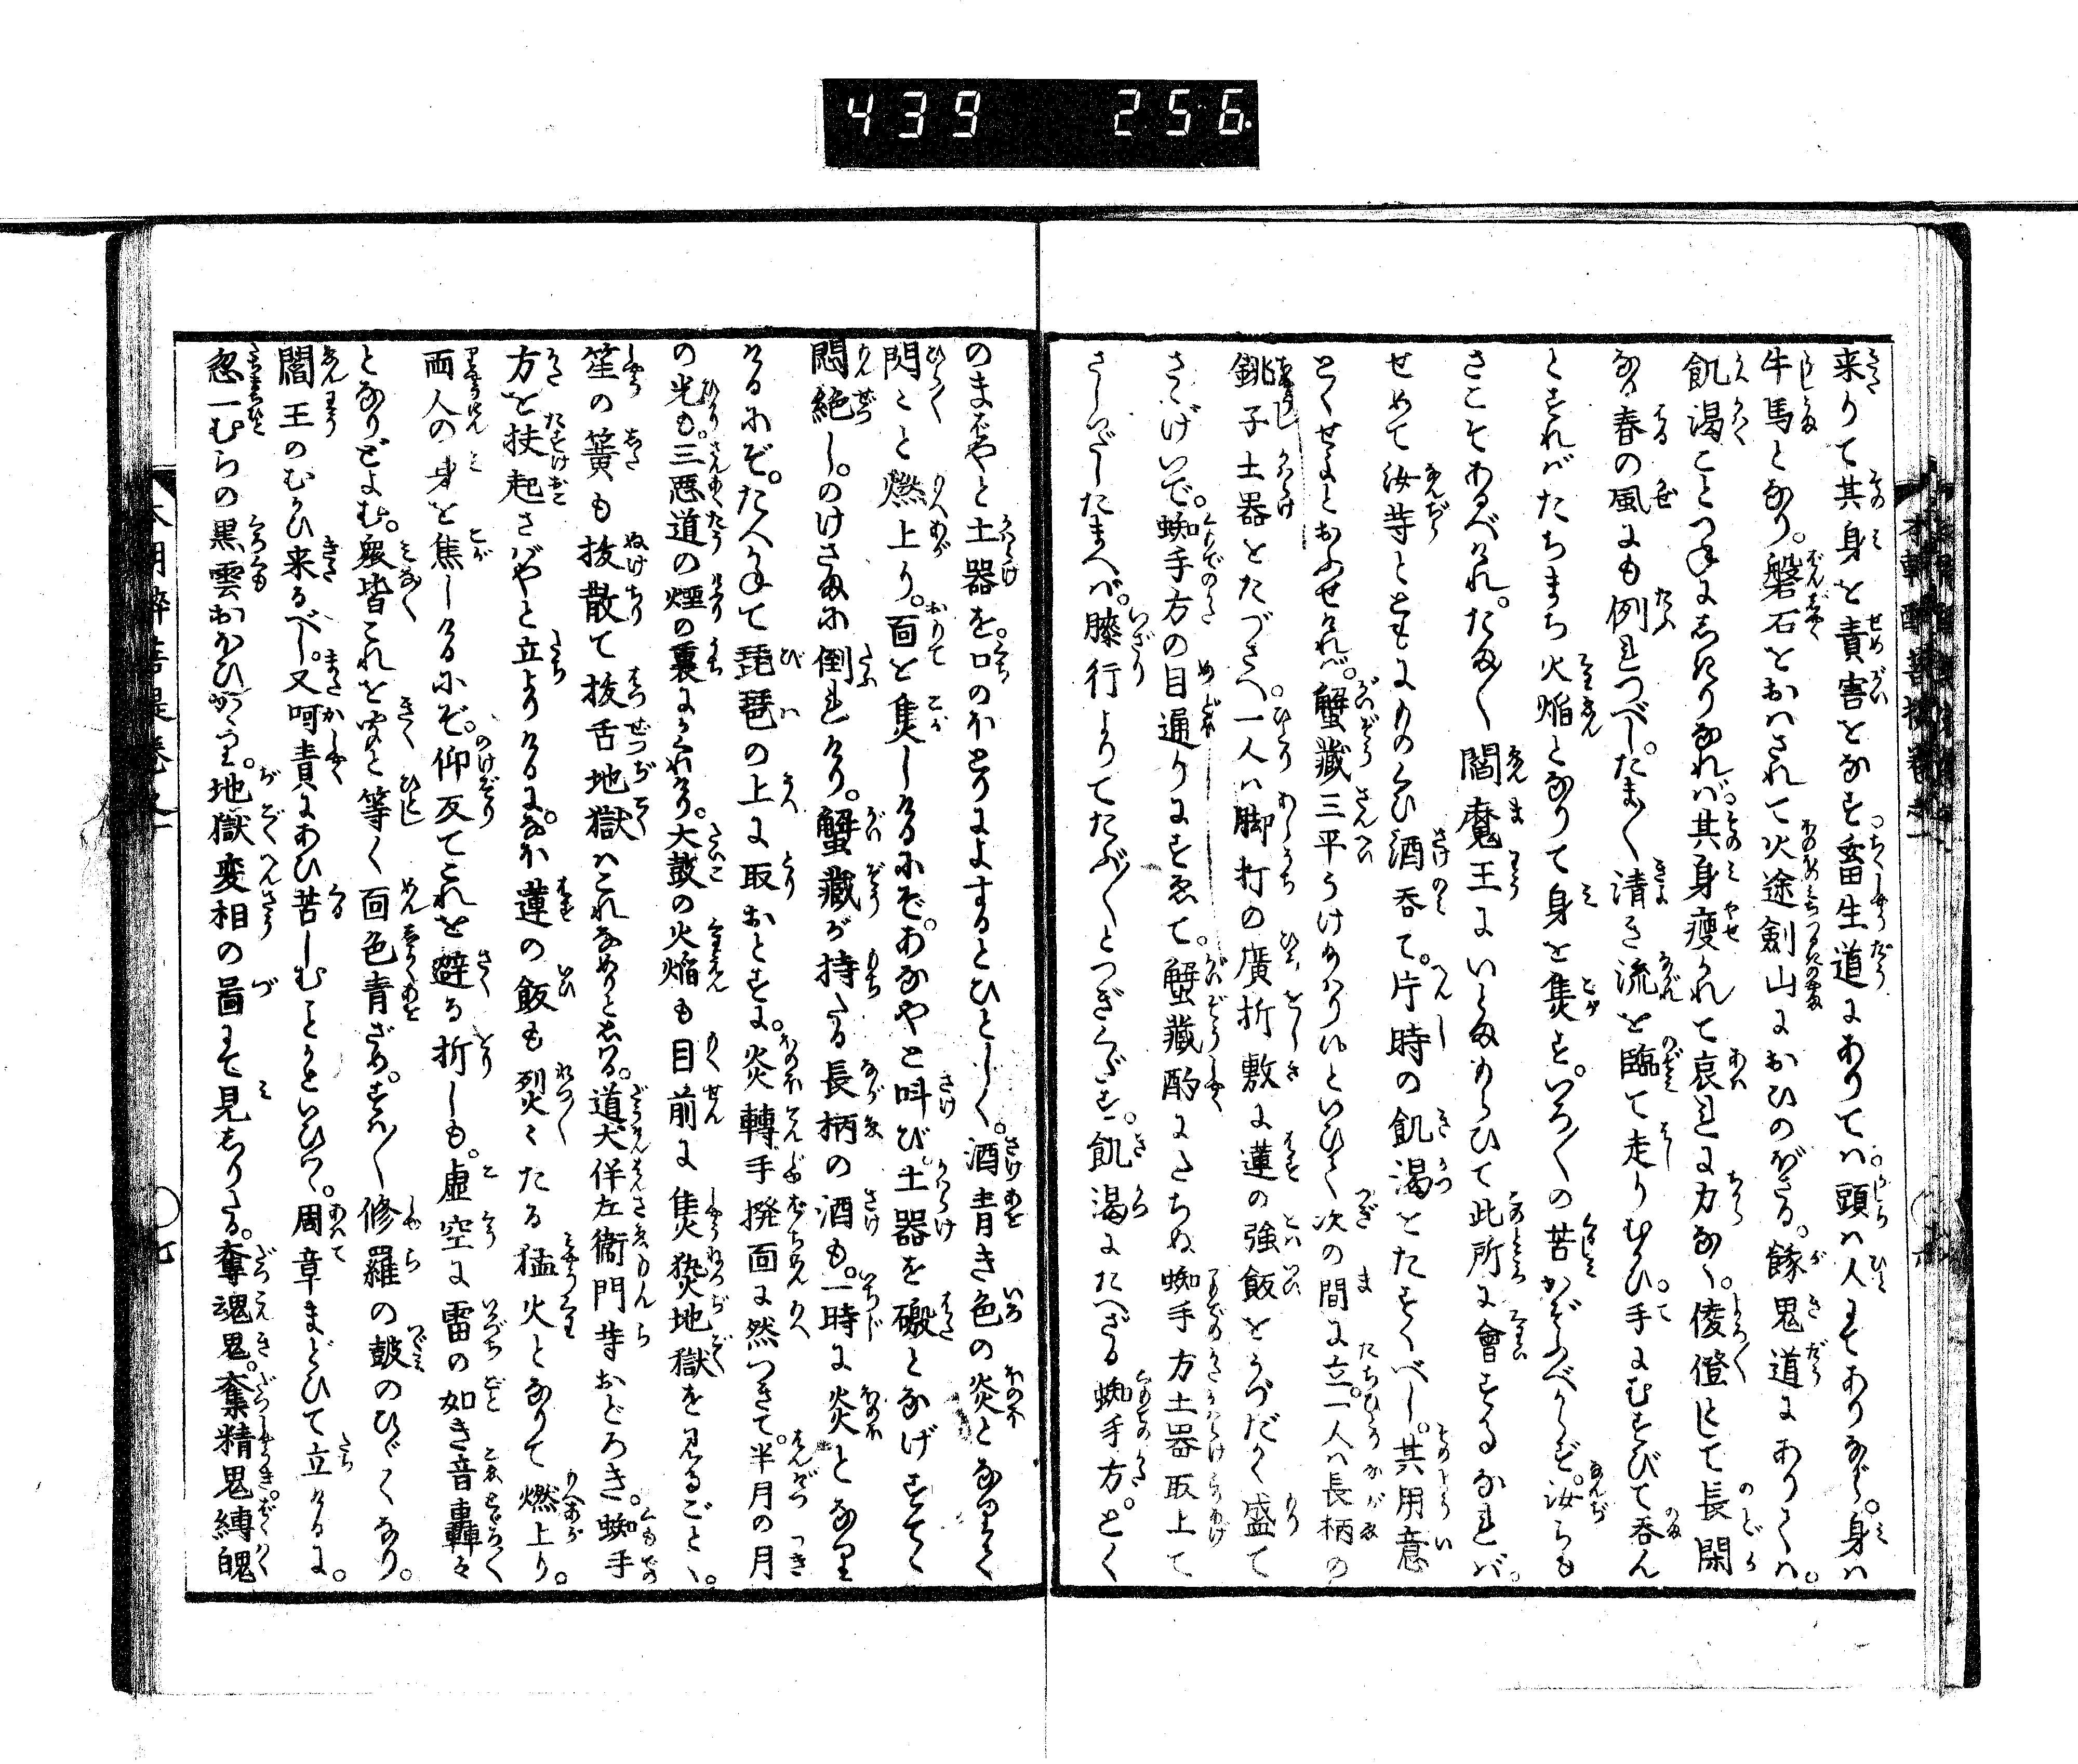 439 256
来りて其身を責害をなす畜生道にありては。頭は人にてありながら。身は
牛馬となり。磐石をおはされて火途劍山におひのぼさる。餓鬼道にありては。
飢渇ことつねにしきりなれば其身瘦かれて哀れに力なく。倰僜として長閑
なる春の風にも倒れつべし。たま〳〵清き流を臨て走りむかひ。手にむすびて呑ん
とすればたちまち火焔となりて身を焦す。いろ〳〵の苦かぞふべからず。汝らも
さこそあるべけれ。たま〳〵閻魔王にいとまもらひて此所に會するなれば。
せめて汝等とともにものくひ酒呑て。片時の飢渇をたすくべし。其用意
とくせよとおふせければ。蟹藏三平うけ給はり候といひて次の間に立。一人は長柄の
銚子土器をたづさへ。一人は脚打の廣折敷に蓮の強飯をうづだかく盛て
さゝげいで。蜘手方の目通りにすゑて。蟹藏酌にたちぬ蜘手方土器取上て
さしいだしたまへば。膝行よりてたぶ〳〵とつぎくだす。飢渇にたへざる蜘手方。とく
のまばやと土器を。口のほとりによするとひとしく。酒青き色の炎となりて
閃々と燃上り。面を焦しけるにぞ。あなやと叫び。土器を礑となげすてて
悶絶し。のけさまに倒れけり。蟹藏が持たる長柄の酒も。一時に炎となり
けるにぞ。たへかねて琵琶の上に取おとすに。炎轉手撥面に然つきて。半月の月
の光も。三惡道の煙の裏にかくれけり。大鼓の火焔も目前に焦𤍠地獄を見るごとく。
笙の簧も抜散て抜舌地獄はこれなめりとしる。道犬伴左衞門等おどろき。蜘手
方を扶起さばやと立よりけるに。なほ蓮の飯も烈々たる猛火となりて燃上り。
両人の身を焦しけるにぞ。仰反てこれを避る折しも。虛空に雷の如き音轟々
となりどよむ。衆皆これを聞と等く面色青ざめ。すは〳〵修羅の鼓のひゞくなり。
閻王のむかひ来るべし。又呵責にあひ苦しむことかといひつゝ。周章まどひて立けるに。
忽一むらの黒雲おほひかゝり。地獄変相の啚にて見しりたる。奪魂鬼。奪精鬼縛魄
本朝醉菩提卷之
七